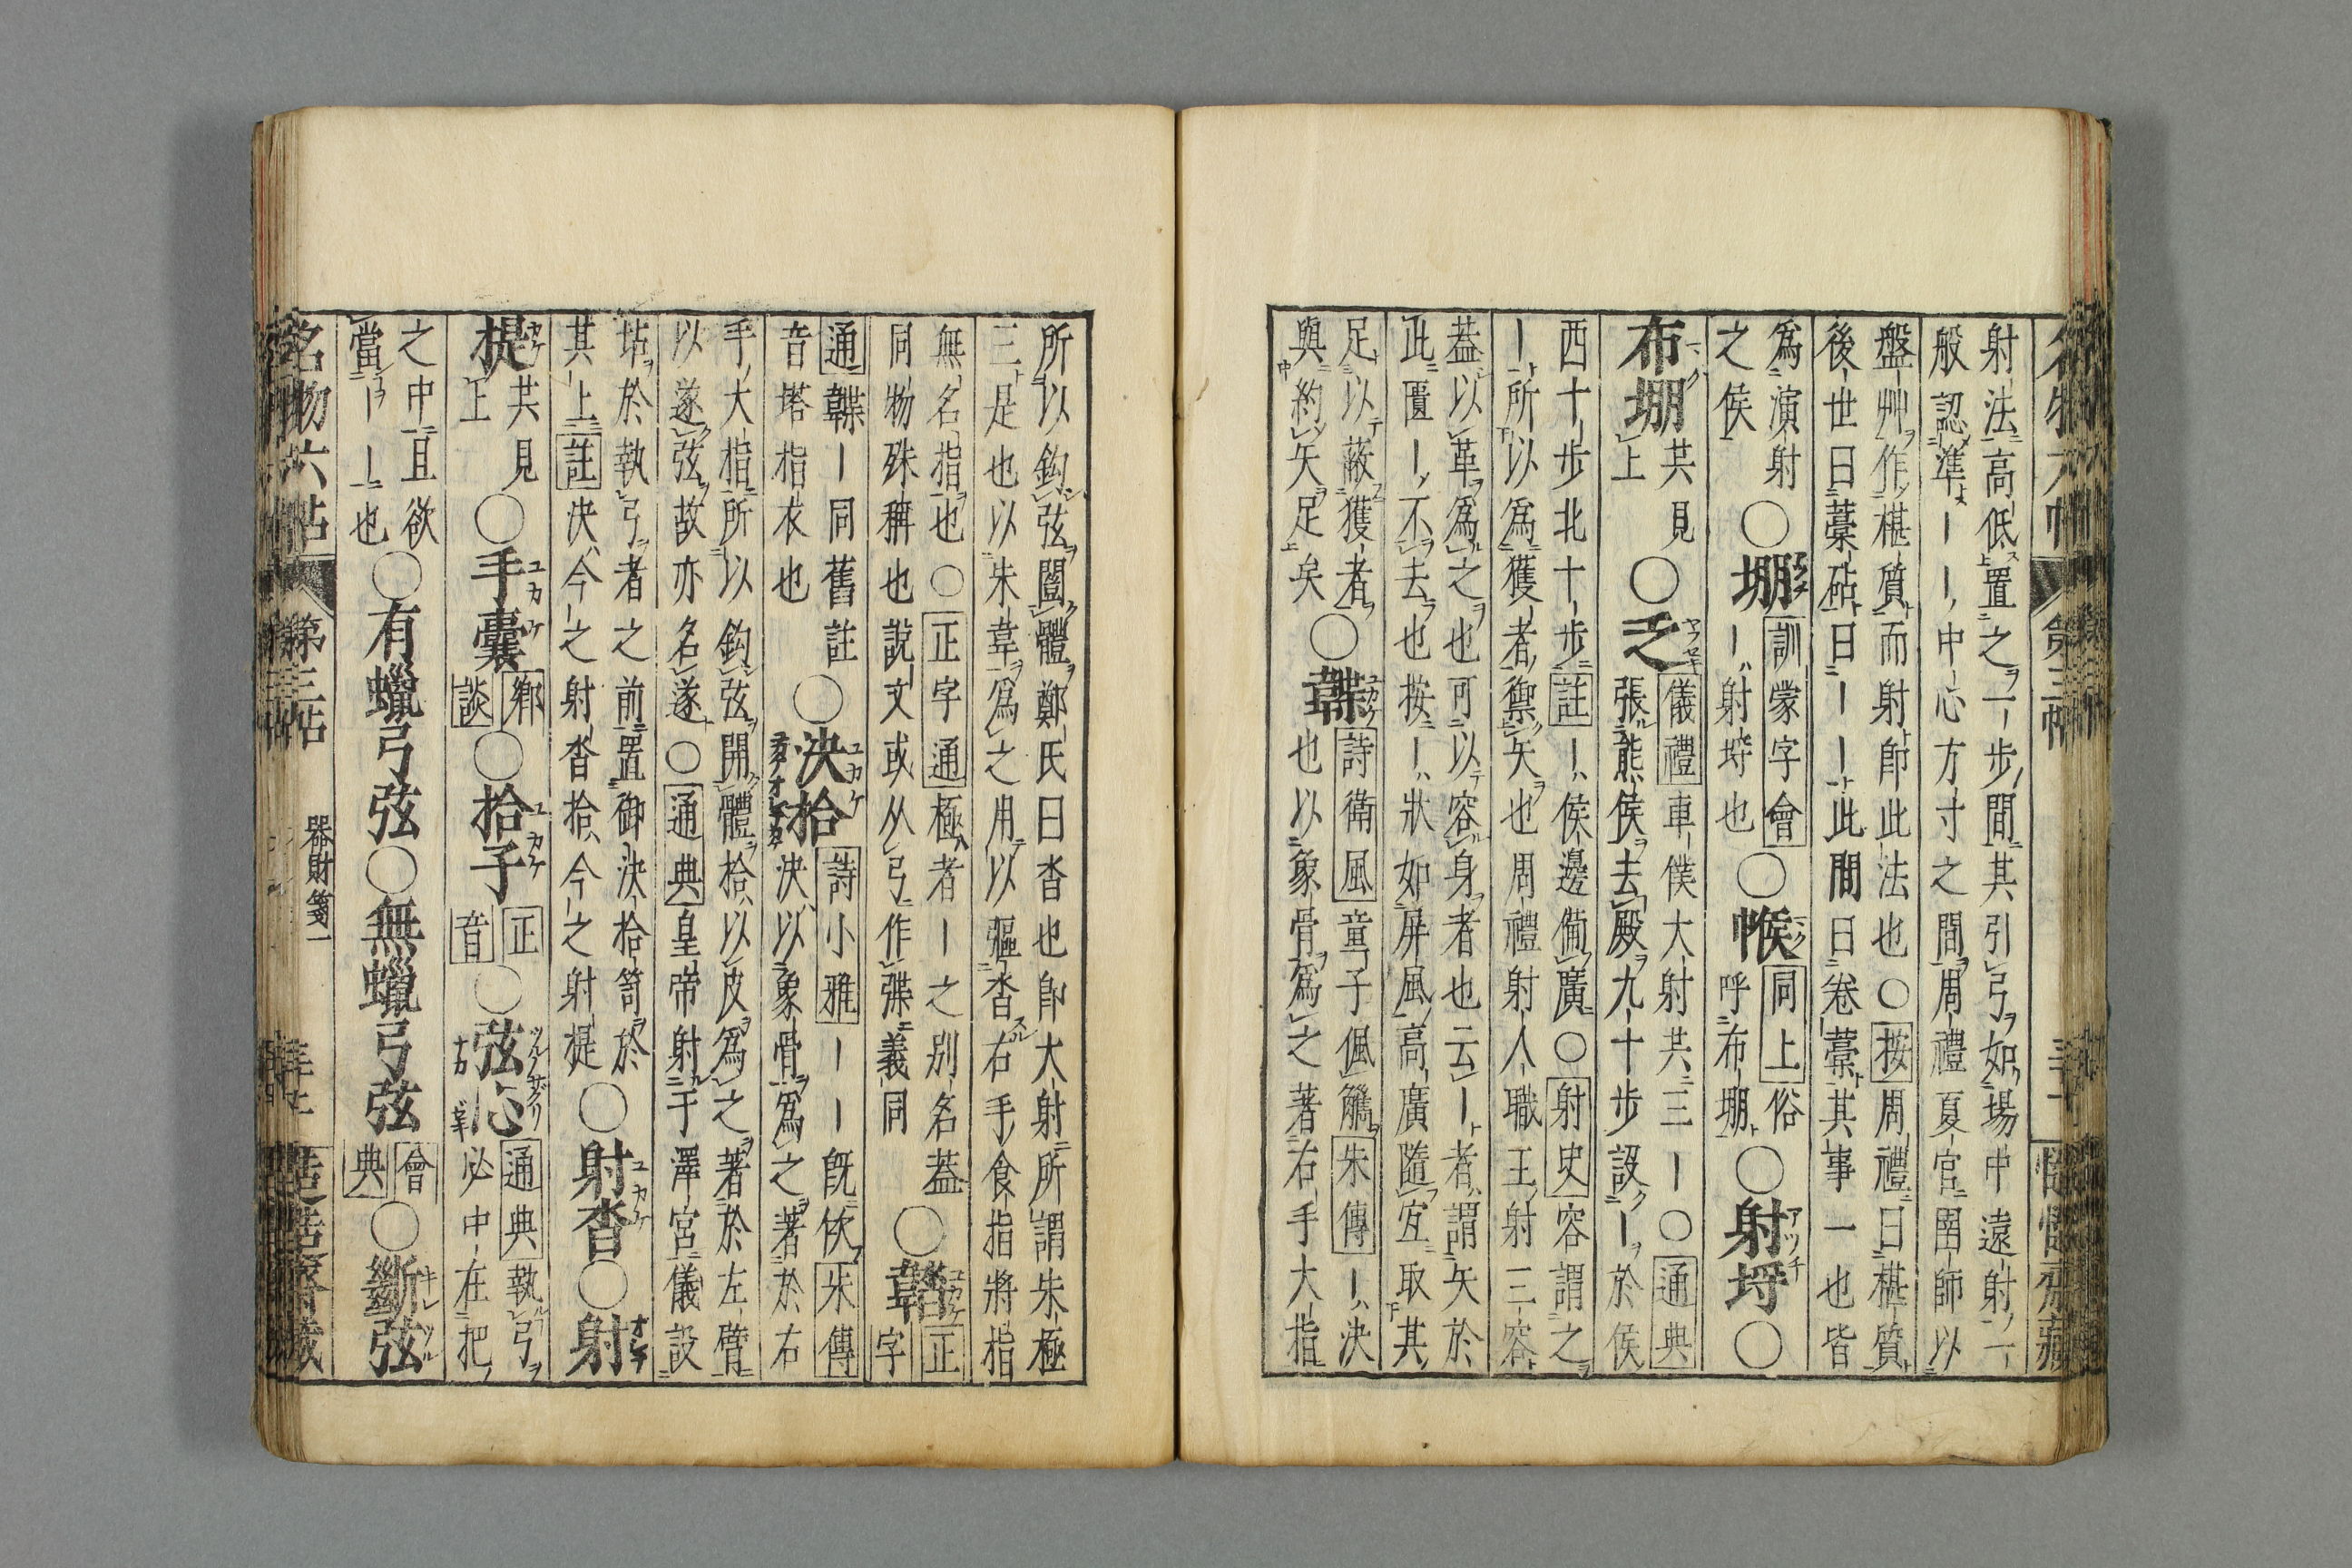 射法高低置之一步間其引弓如場中遠射一
般認準――中心方寸之間周禮夏官圉師以
盤艸作椹質而射即此法也○按周禮曰椹質
後世曰藁砧曰――此間曰卷藁其事一也皆
爲演射
之侯
○堋
訓蒙字會
―射埒也
○帿
同上俗
呼布堋
○射埒○
布堋
共見
上
○乏
儀禮車僕大射共三―○通典
張熊侯去殿九十步設―於侯
西十步北十步註―侯邊備廣○射史容謂之
―所以爲獲者禦矢也周禮射人職王射三容
葢以革爲之也可以容身者也云―者謂矢於
此匱―不去也按―狀如屏風高廣隨宜取其
足以蔽獲者
與約矢足矣
○韘
詩衞風童子佩觿朱傳―決
也以象骨爲之著右手大指
所以鈎弦闓體鄭氏曰沓也即大射所謂朱極
三是也以朱韋爲之用以彄沓右手食指將指
無名指也○正字通極者―之别名葢
同物殊稱也說文或从弓作弽義同
○𩎽
正字
通韘―同舊註
音塔指衣也
○決拾
詩小雅――旣佽朱傳
決以象骨爲之著於右
手大指所以鈎弦開體拾以皮爲之著於左臂
以遂弦故亦名遂○通典皇帝射于澤宮儀設
坫於執弓者之前置御決拾笥於
其上註決今之射沓拾今之射禔
○射沓○射
禔
共見
上
○手囊
鄉
談
○拾子
正
音
○弦心
通典執弓
必中在把
之中且欲
當――也
○有蠟弓弦○無蠟弓弦
會
典
○斷弦
名物六帖
第三帖
器財箋一